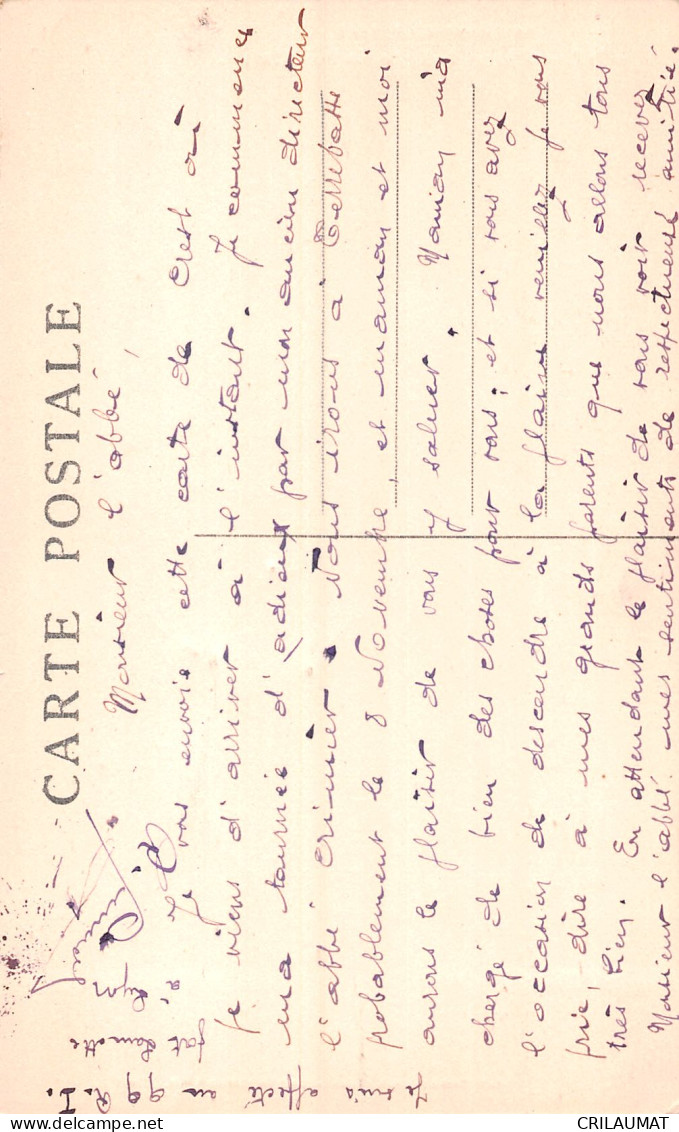 CARTE POSTALE
Monsieur l'abbé,
Je vous envoie cette carte de Crest où
je viens d'arriver à l'instant. Je commence
ma tournée d'adieux par mon ancien directeur
l'abbé Crinier. Nous irons à
probablement le 8 Novembre, et maman et moi
aurons le plaisir de vous y saluer. Maman m'a
chargé de bien des choses pour vous, et si vous avez
l'occasion de descendre à la plaine veuillez je vous
prie, dire à mes grands parents que nous allons tous
très bien. En attendant le plaisir de vous voir recevez
Monsieur l'abbé mes sentiments de respectueuse amitié.
Je suis affecté au 99 R. I.
CRILAUMAT